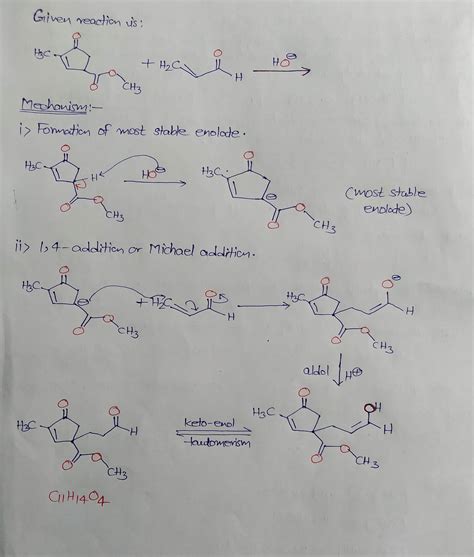 Given reaction is:
O
H3C
O
O
CH3
+ H2C
O
H
HO⊖
Mechanism:-
i> Formation of most stable enolate.
O
H3C
H
HO⊖
O
O
CH3
O
H3C
⊖
O
O
CH3
(most stable
enolate)
ii> 1,4-addition or Michael addition.
O
H3C
⊖
O
O
CH3
+ H2C
O
H
O
H3C
O⊖
H
O
O
CH3
aldol H⊕
O
H3C
O
H
O
O
CH3
keto-enol
tautomerism
O
H3C
OH
H
O
O
CH3
C11H14O4